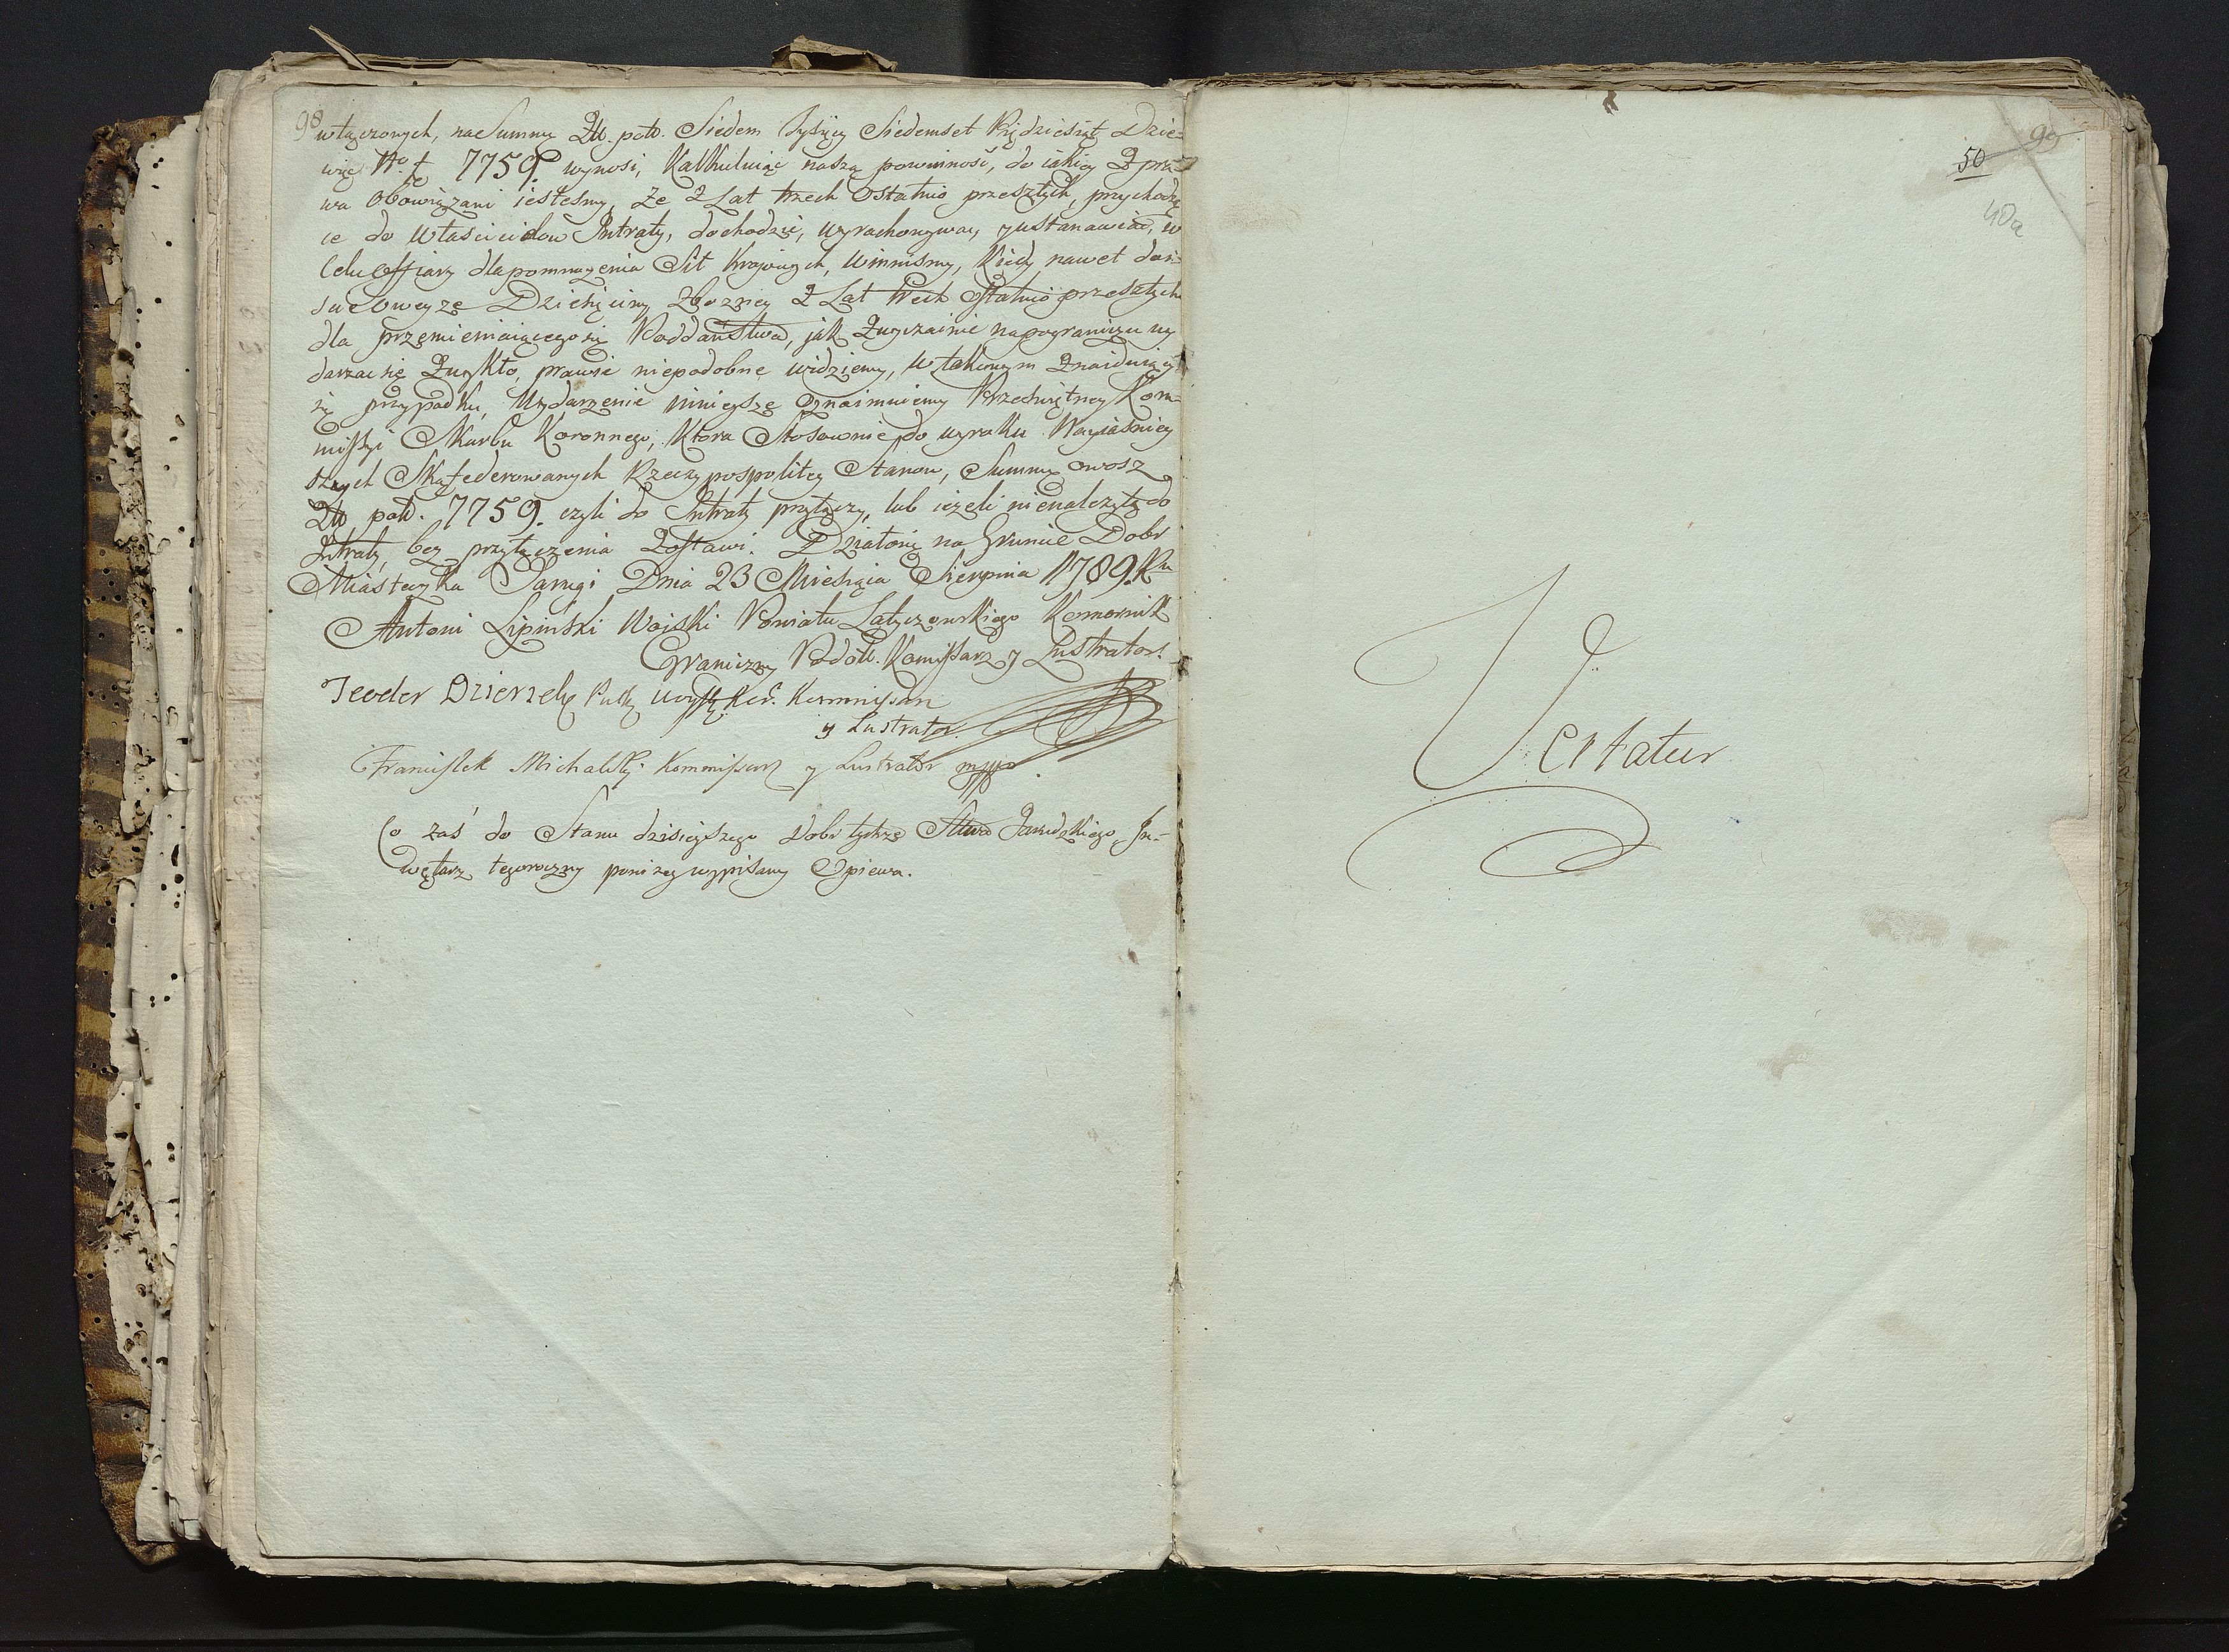 98
włączonych, na Summę Zł. pol. Siedem Tysięcy Siedemset Pięćdziesiąt Dzie-
więć No. 7759. wynosi, Kalkulując naszą powinność, do iakiey z pra-
wa Obowiązani iestesmy, że z Lat trzech Ostatnio przeszłych, przychodzą
ce do właścicielow Intraty, dochodzić, wyrachowywac, y ustanawiać, w
Celu Offiary dla pomnażenia Sił Kraiowych, winnismy, Kiedy nawet
Dziesięciny zbozney z Lat trzech Ostatnio przeszłych
dla przemieniaiącego się Poddaństwa, jak zwyczainie na pograniczu wy
darzac się zwykło, prawie niepodobne widziemy, w takowym znaiduiąc
się przypadku, wydarzenie ninieysze Oznaimuiemy Przeświętney Kom-
missyi Skarbu Koronnego, Ktora Stosownie do wyroku Nayiaśniey
szych Skąfederowanych Rzeczypospolitey Stanow, Summę owosz
Zł. pol. 7759. czyli do Intraty przyłączy, lub ieżeli nienależytą do
Intraty, bez przyłączenia Zostawi. Działoię na Gruncie Dobr
Miasteczka Jarugi Dnia 23 Miesiąca Sierpnia 1789. Ru
Antoni Lipiński Woiski Powiatu Latyczowskiego Komornik
Graniczny Podol. Komissarz y Lustrator.
Teodor Dzierzek Kommissarz
y Lustrator.
Franciszek Michalski Kommissarz y Lustrator mpp
Co zaś do Stanu dzisieyszego Dobr tychże Jarudzkiego In-
wętarz tegoroczny poniżey wypisany Opiewa.
99
50
40a
Vertatur